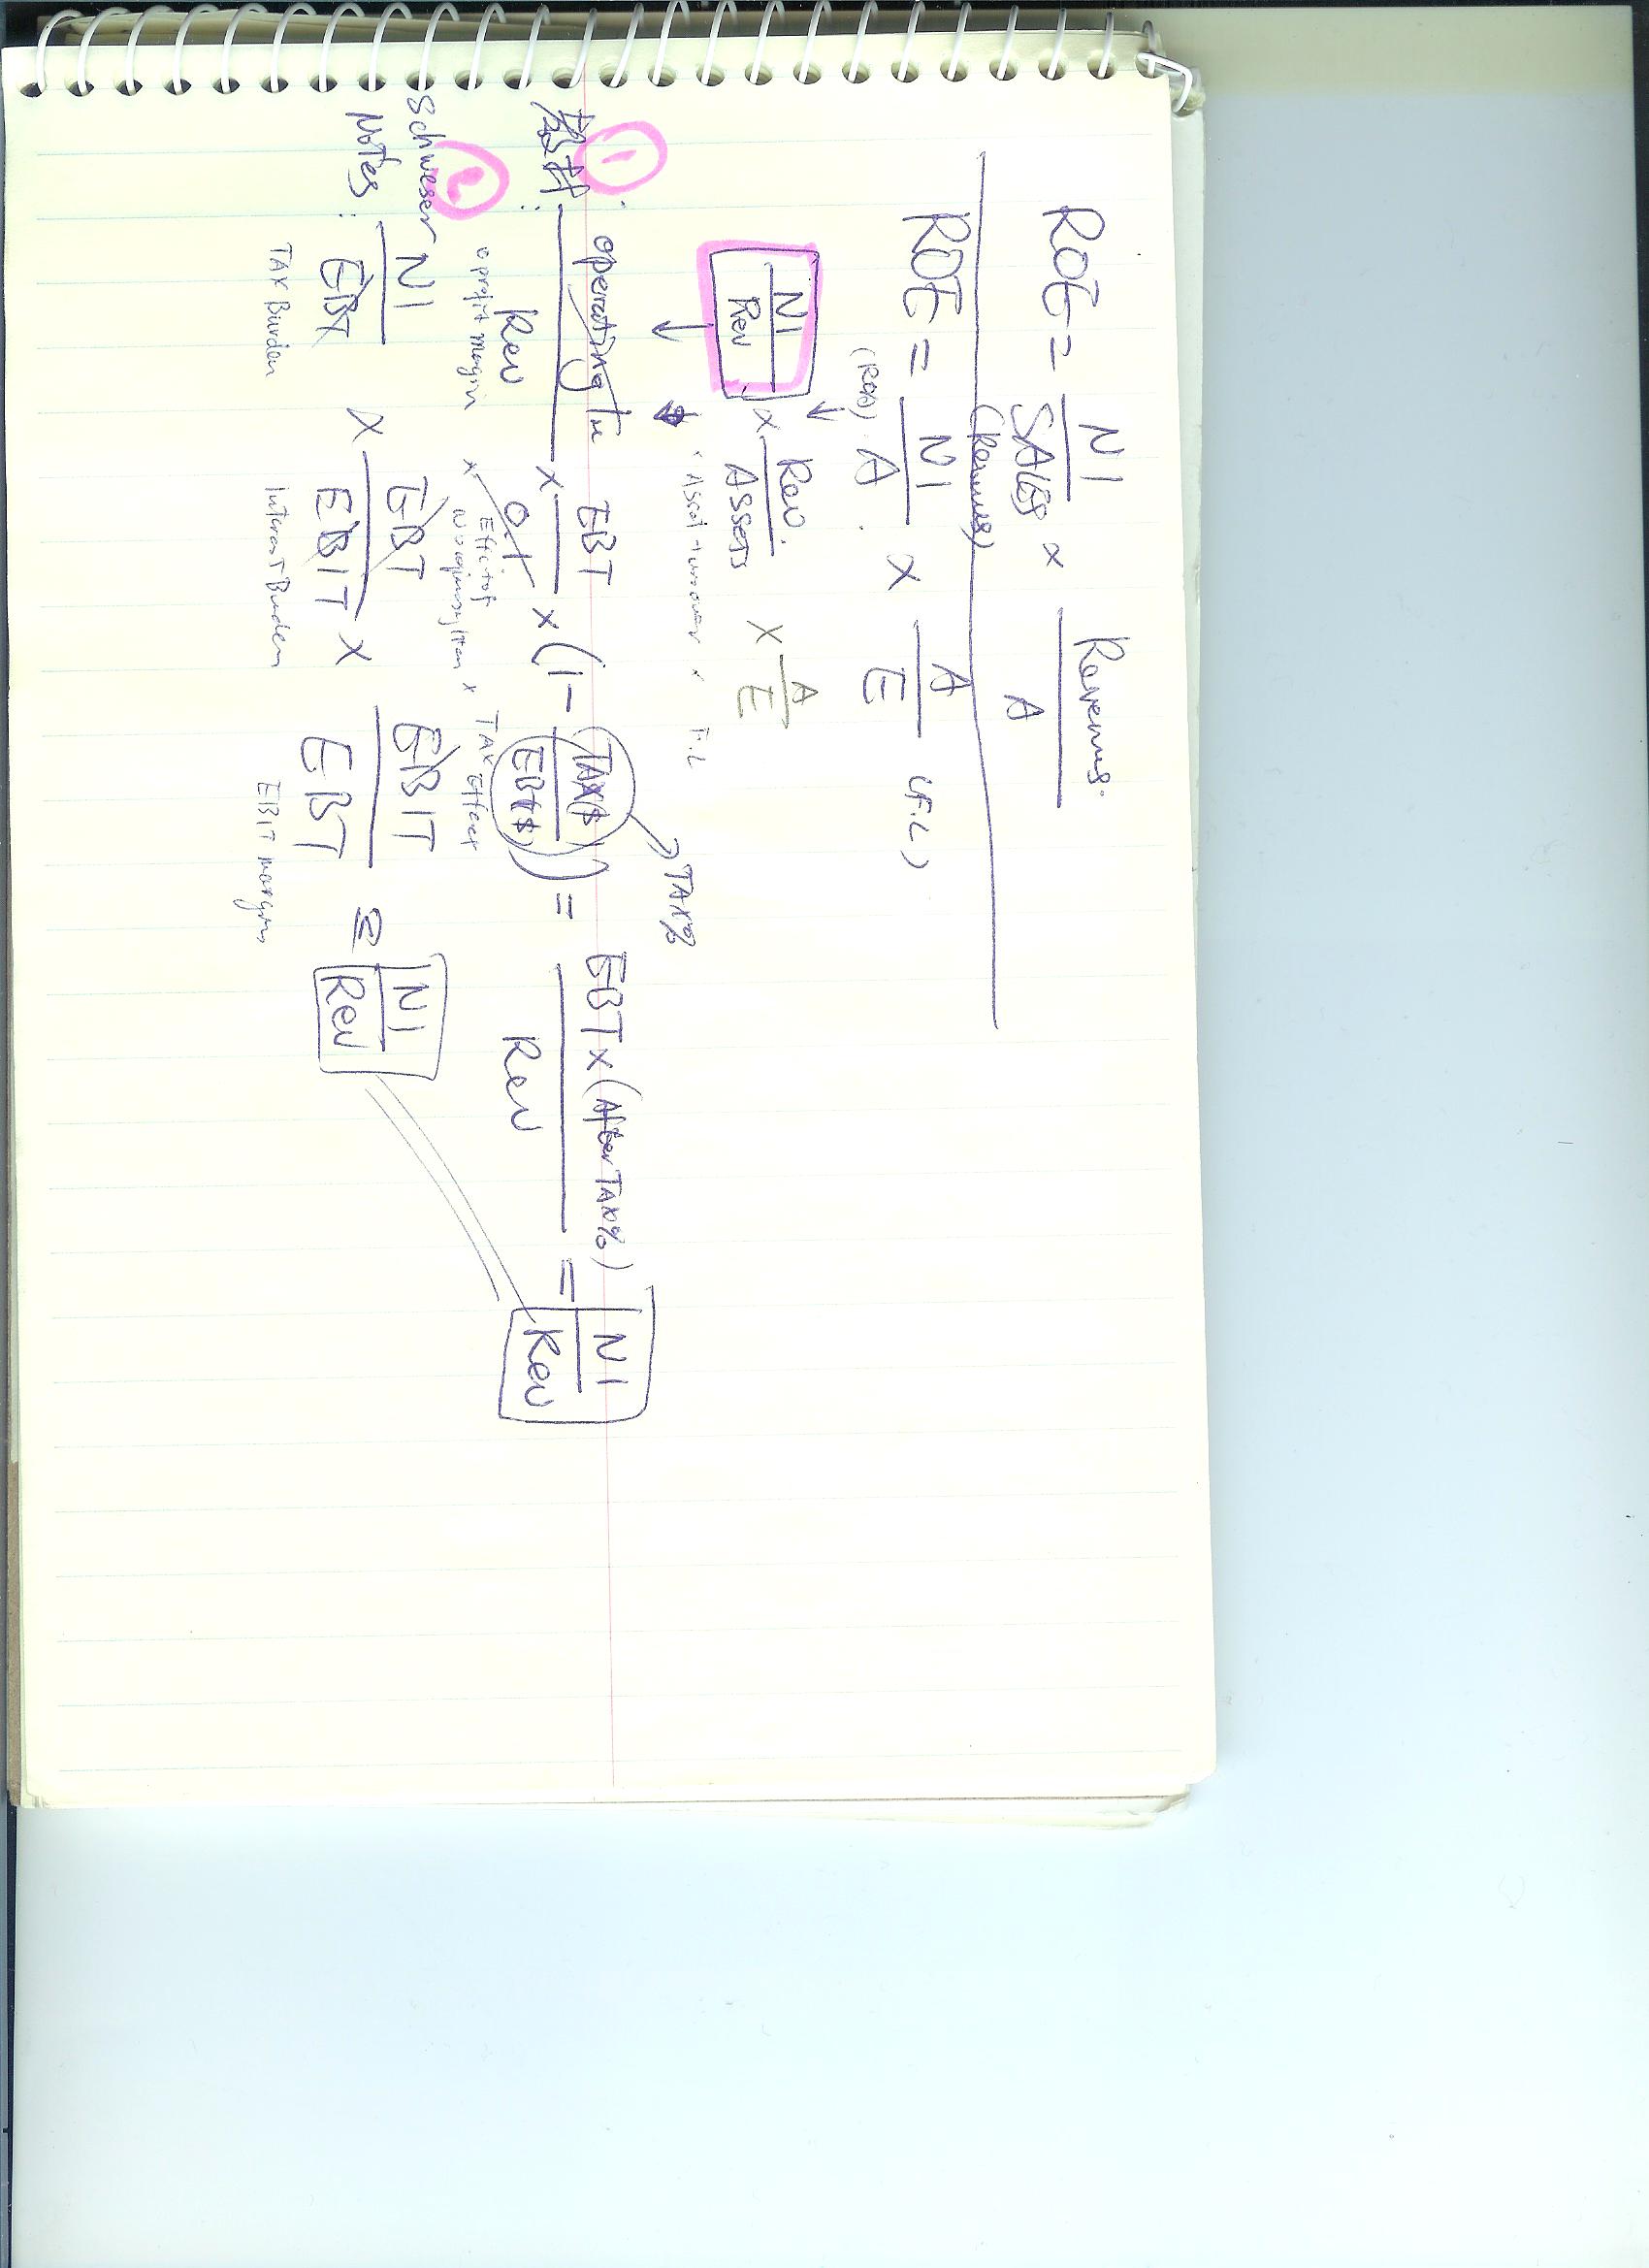 ROE = NI / SALES (Revenues) × Revenues / A
ROE = NI / A (ROA) × A / E (F.L)
NI / Rev × Rev. / Assets × A / E
↓ ↓ × Asset turnover × F.L
①
教材: operating In / Rev × EBT / O.I × (1 - (TAX($) / EBT($))) = EBT × (After TAX%) / Rev = NI / Rev
→ TAX%
o profit margin × Effect of × TAX Effect
②
Schweser
Notes: NI / EBT × EBT / EBIT × EBIT / EBT = NI / Rev
TAX Burden Interest Burden EBIT margin